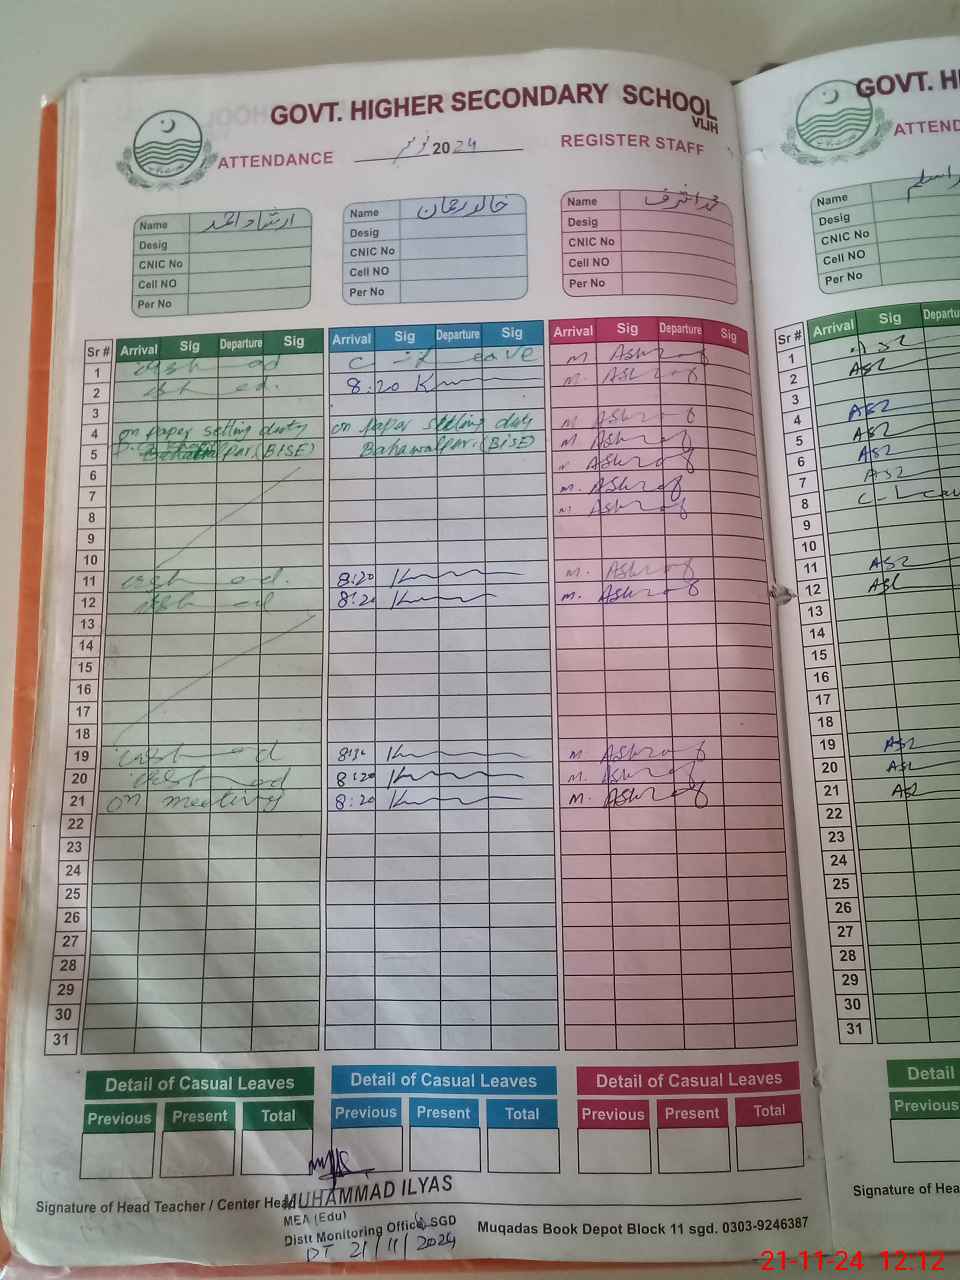 GOVT. HIGHER SECONDARY SCHOOL
VIJH
ATTENDANCE نومبر 2024 REGISTER STAFF
Name ارشاد احمد
Desig
CNIC No
Cell NO
Per No
Name خالد رحمان
Desig
CNIC No
Cell NO
Per No
Name محمد اشرف
Desig
CNIC No
Cell NO
Per No
Sr # Arrival Sig Departure Sig Arrival Sig Departure Sig Arrival Sig Departure Sig
1 Leave M. Ashraf
2 8:20 M. Ashraf
3
4 on paper setting duty on paper setting duty M. Ashraf
5 (BISE) Bahawalpur (BISE) M. Ashraf
6 M. Ashraf
7 M. Ashraf
8 M. Ashraf
9
10
11 8:20 M. Ashraf
12 8:20 M. Ashraf
13
14
15
16
17
18
19 M. Ashraf
20 8:20 M. Ashraf
21 on meeting 8:20 M. Ashraf
22
23
24
25
26
27
28
29
30
31
Detail of Casual Leaves Detail of Casual Leaves Detail of Casual Leaves
Previous Present Total Previous Present Total Previous Present Total
Signature of Head Teacher / Center Hea
MUHAMMAD ILYAS
MEA (Edu)
Distt Monitoring Office SGD
DT 21/11/2024
Muqadas Book Depot Block 11 sgd. 0303-9246387
GOVT. HI
ATTEND
Name اسلم
Desig
CNIC No
Cell NO
Per No
Sr # Arrival Sig Departu
1
2
3
4
5
6
7
8
9
10
11
12
13
14
15
16
17
18
19
20
21
22
23
24
25
26
27
28
29
30
31
Detail
Previous
Signature of Hea
21-11-24 12:12